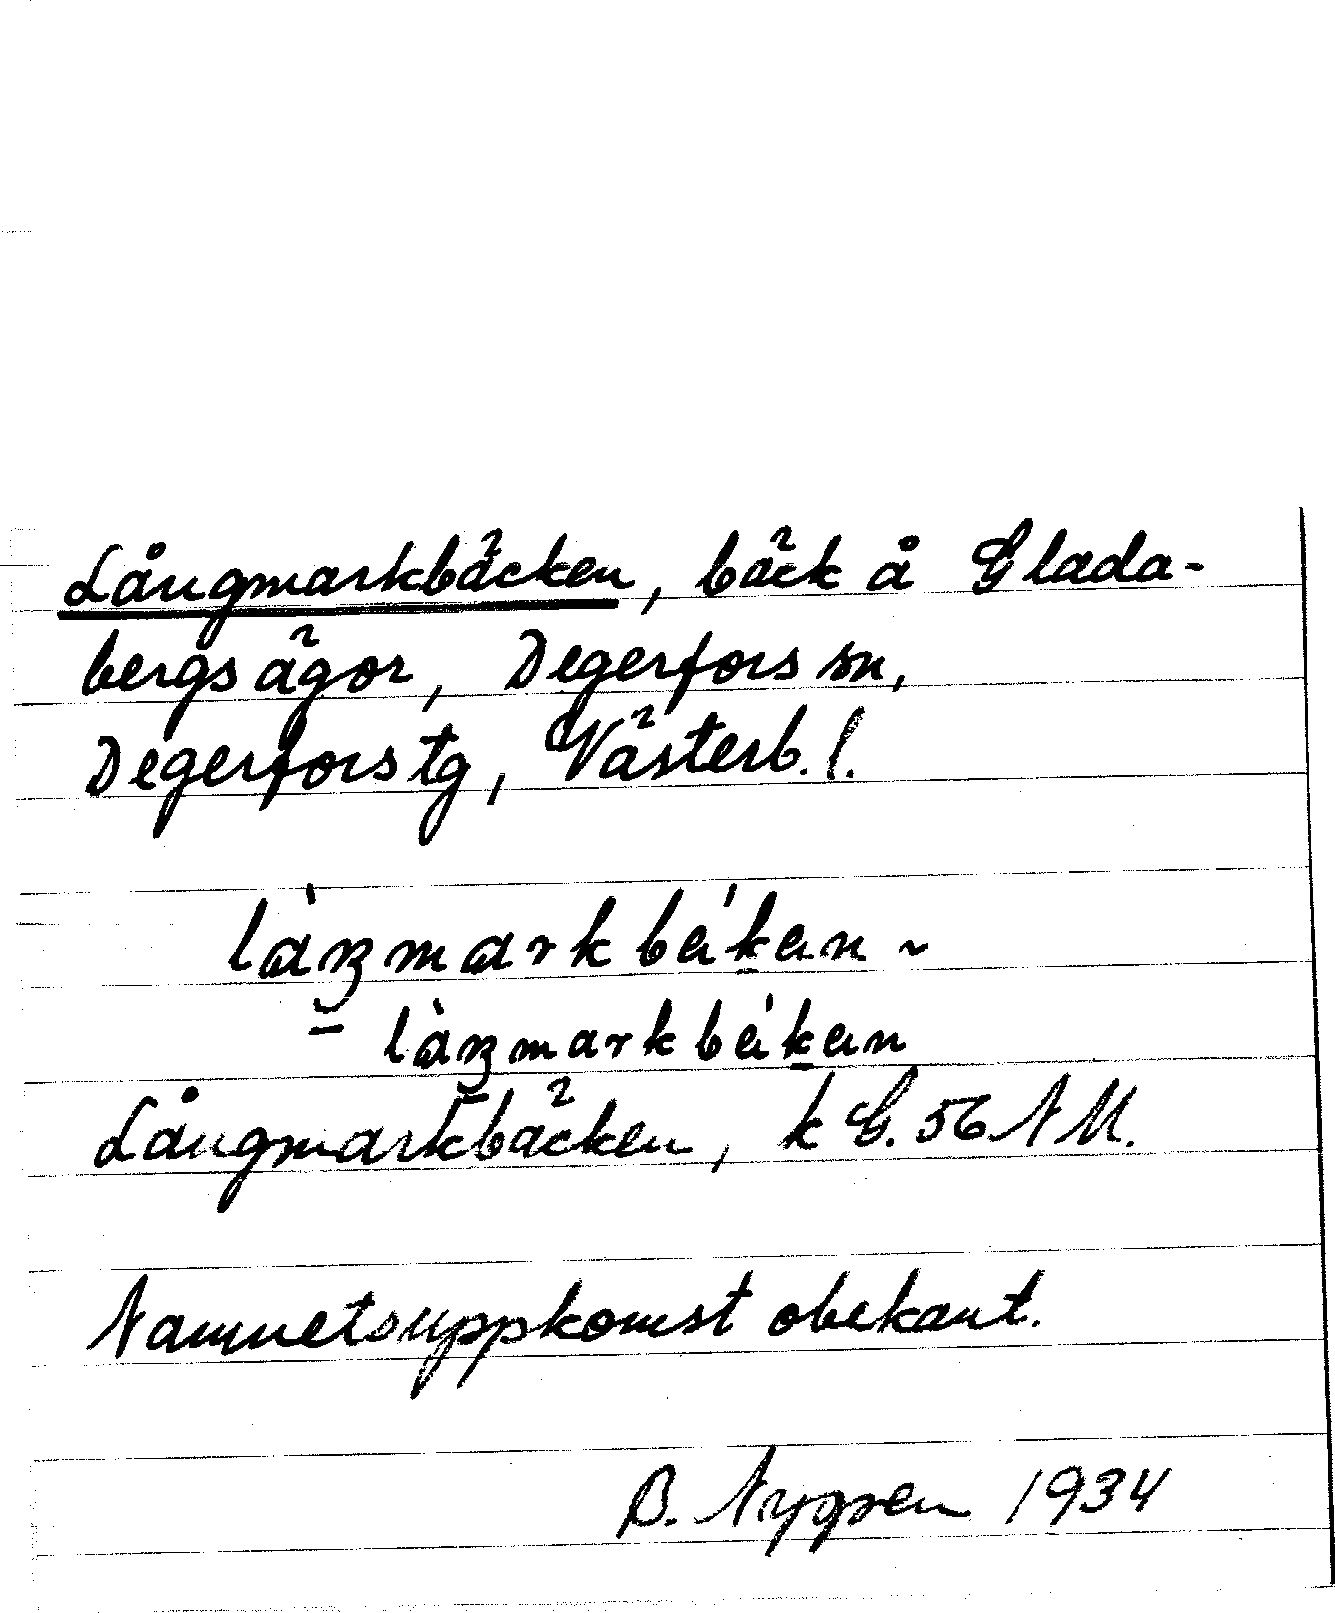 Långmarkbäcken, bäck å Glada-
bergs ägor, Degerfors sn,
Degerfors tg, Västerb. l.
làŋmarkbékan ~
= làŋmarkbékan
Långmarkbäcken, k G. 56 N M.
Namnets uppkomst obekant.
B. Nygren 1934